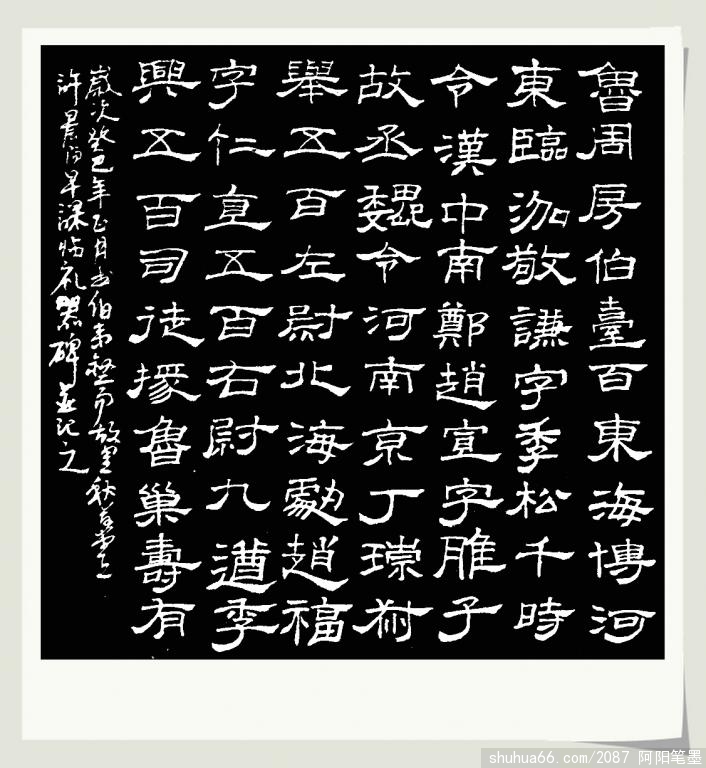 魯周房伯臺百東海博河
東臨泇敬謙字季松千時
令漢中南鄭趙宣字雎子
故丞魏令河南京丁琮叔
舉五百左尉北海劇趙福
字仁直五百右尉九遒季
興五百司徒掾魯巢壽有
歲次癸巳年正月书伯於故里秋
許景伯早课临礼器碑並记之
shuhua66.com/2087 阿阳笔墨